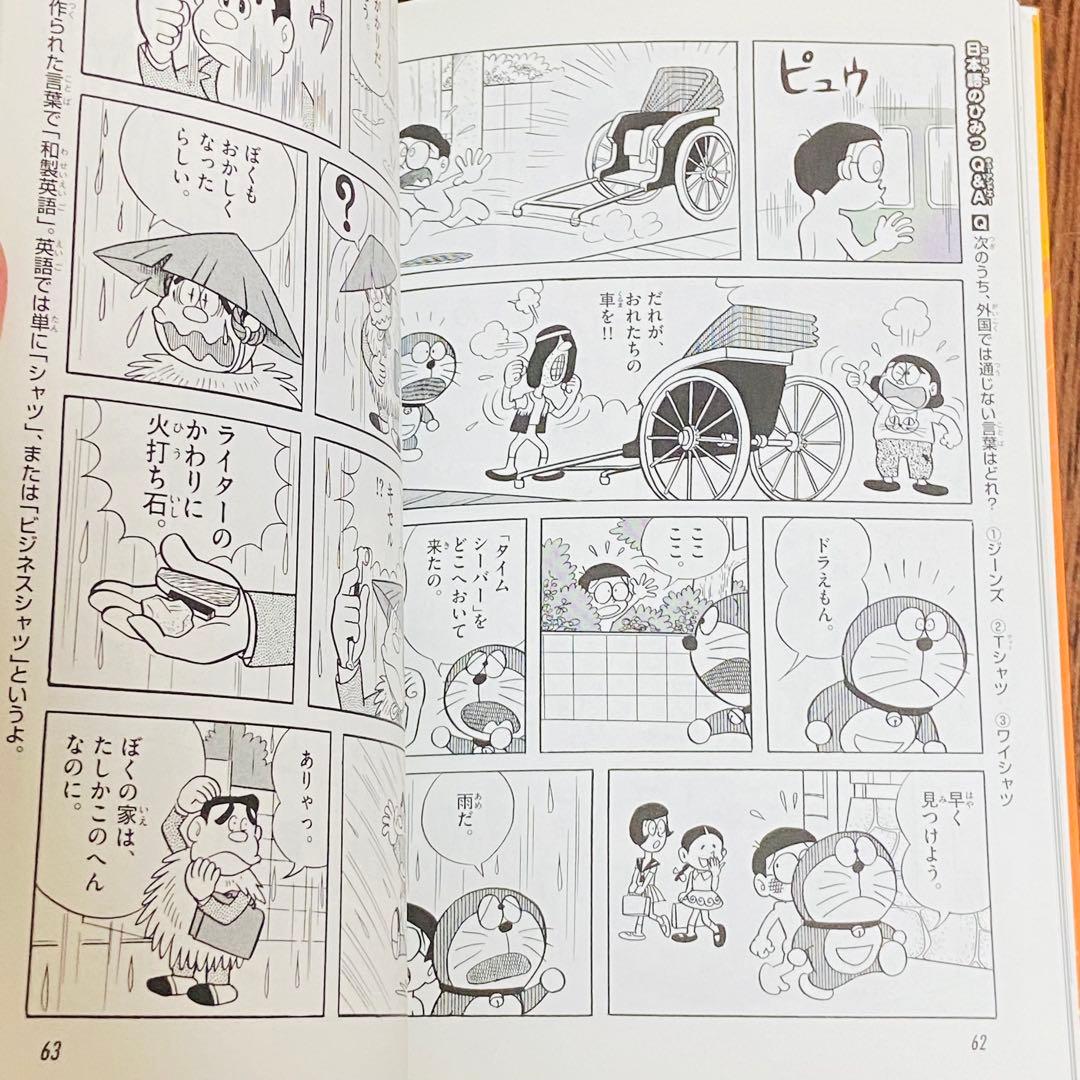 日本語のひみつQ&A Q 次のうち、外国では通じない言葉はどれ? ①ジーンズ ②Tシャツ ③ワイシャツ
ピュウ
だれが、
おれたちの
車を!!
ドラえもん。
ここ
ここ。
「タイム
シーバー」を
どこへおいて
来たの。
早く
見つけよう。
雨だ。
62
?
ぼくも
おかしく
なった
らしい。
ライターの
かわりに
火打ち石。
ありゃっ。
ぼくの家は、
たしかこのへん
なのに。
作られた言葉で「和製英語」。英語では単に「シャツ」、または「ビジネスシャツ」というよ。
63